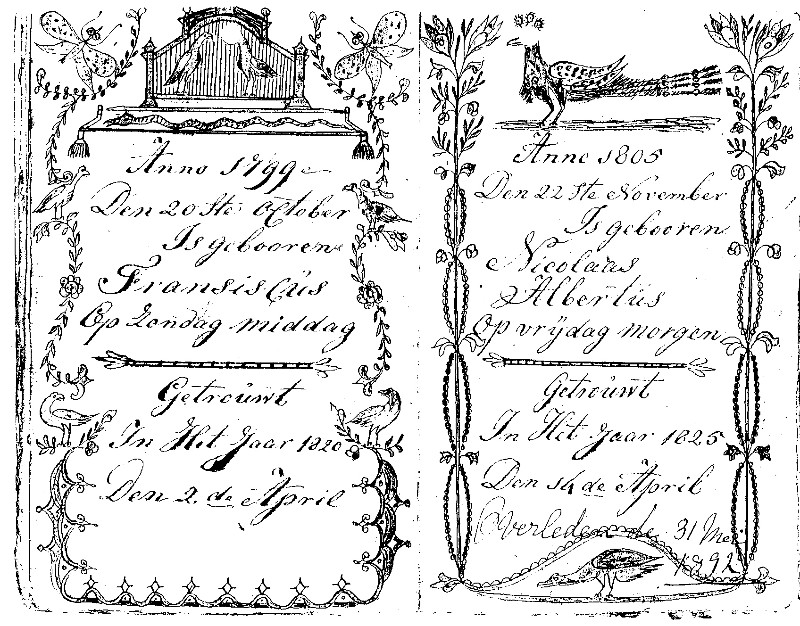 Anno 1799
Den 20 Ste October
Is gebooren
Fransiscüs
Op Zondag middag
Getroüwt
In Het Jaar 1820
Den 2 de April
Anno 1805
Den 22 Ste November
Is gebooren
Nicolaas
Albertüs
Op vrÿdag morgen
Getroüwt
In Het Jaar 1825
Den 14 de April
Overleden de 31 Mei
1892